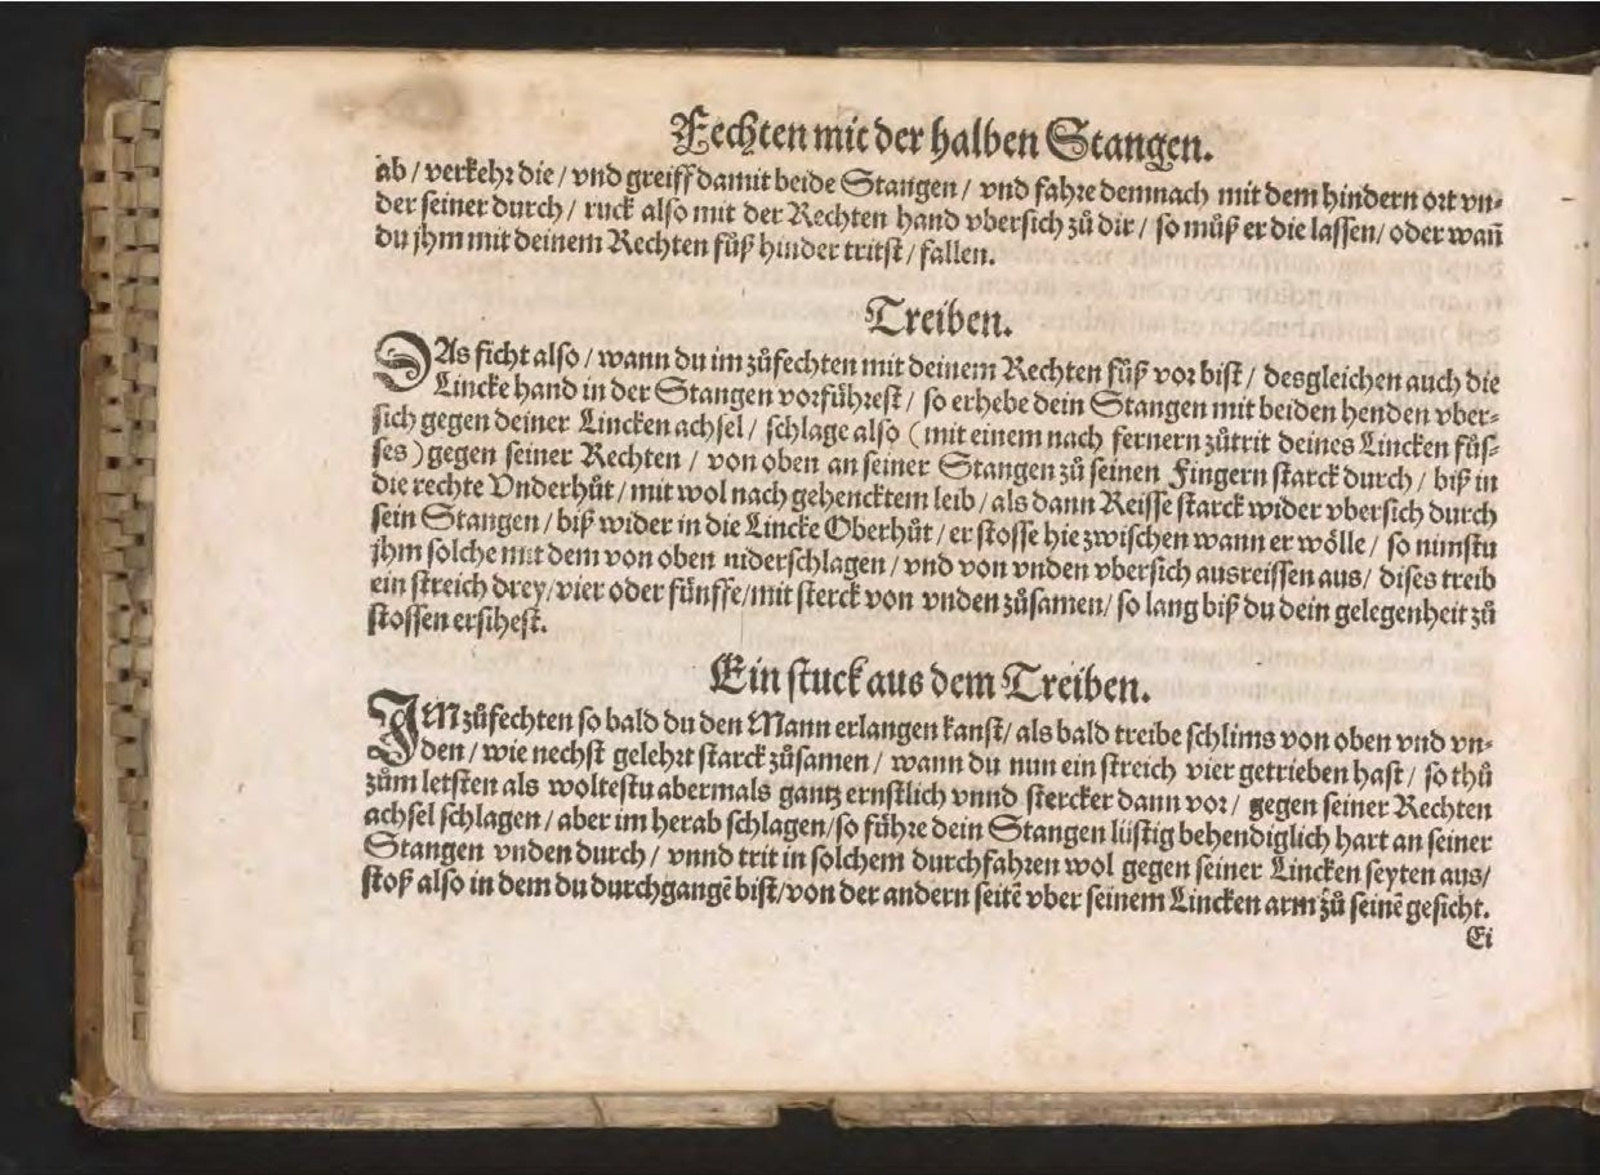 Fechten mit der halben Stangen.
ab / verkehr die / vnd greiff damit beide Stangen / vnd fahre demnach mit dem hindern ort vn⸗
der seiner durch / ruck also mit der Rechten hand vbersich zů dir / so můß er die lassen / oder wañ
du jhm mit deinem Rechten fůß hinder tritst / fallen.
Treiben.
DAs ficht also / wann du im zůfechten mit deinem Rechten fůß vor bist / desgleichen auch die
Lincke hand in der Stangen vorführest / so erhebe dein Stangen mit beiden henden vber⸗
sich gegen deiner Lincken achsel / schlage also (mit einem nach fernern zůtrit deines Lincken fůs⸗
ses) gegen seiner Rechten / von oben an seiner Stangen zů seinen Fingern starck durch / biß in
die rechte Vnderhůt / mit wol nach gehencktem leib / als dann Reisse starck wider vbersich durch
sein Stangen / biß wider in die Lincke Oberhůt / er stosse hie zwischen wann er wölle / so nimstu
jhm solche mit dem von oben niderschlagen / vnd von vnden vbersich ausreissen aus / dises treib
ein streich drey / vier oder fünffe / mit sterck von vnden zůsamen / so lang biß du dein gelegenheit zů
stossen ersihest.
Ein stuck aus dem Treiben.
IM zůfechten so bald du den Mann erlangen kanst / als bald treibe schlims von oben vnd vn⸗
den / wie nechst gelehrt starck zůsamen / wann du nun ein streich vier getrieben hast / so thů
zům letsten als woltestu abermals gantz ernstlich vnnd stercker dann vor / gegen seiner Rechten
achsel schlagen / aber im herab schlagen / so führe dein Stangen lüstig behendiglich hart an seiner
Stangen vnden durch / vnnd trit in solchem durchfahren wol gegen seiner Lincken seyten aus /
stoß also in dem du durchgangē bist / von der andern seitē vber seinem Lincken arm zů seinē gesicht.
Ei